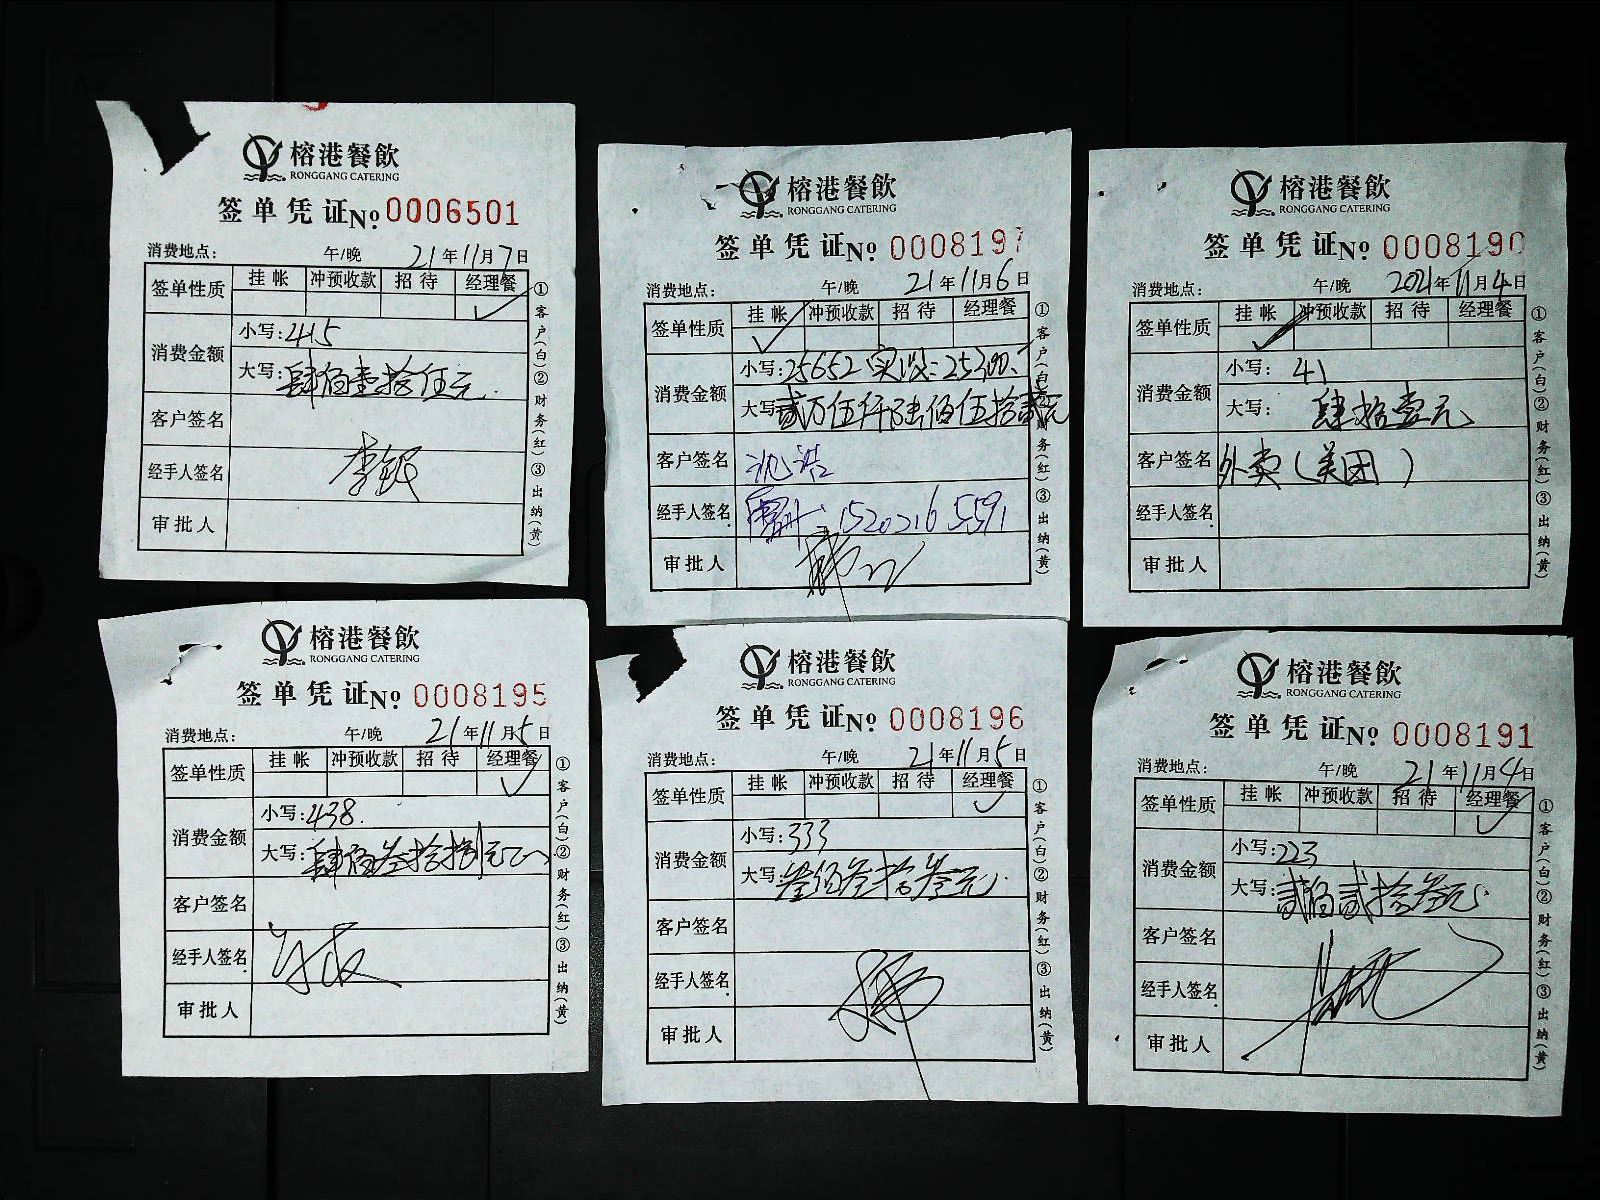 榕港餐飲
RONGGANG CATERING
签单凭证No 0006501
消费地点： 午/晚 21年11月7日
签单性质 挂帐 冲预收款 招待 经理餐 ✓
消费金额
小写：415
大写：肆佰壹拾伍元
客户签名
经手人签名 李银
审批人
①客户(白)②财务(红)③出纳(黄)
榕港餐飲
RONGGANG CATERING
签单凭证No 0008197
消费地点： 午/晚 21年11月6日
签单性质 挂帐 ✓ 冲预收款 招待 经理餐
消费金额
小写：25652 实收：25300
大写：贰万伍仟陆佰伍拾贰元
客户签名 沈浩
经手人签名 15202165591
审批人
①客户(白)②财务(红)③出纳(黄)
榕港餐飲
RONGGANG CATERING
签单凭证No 0008190
消费地点： 午/晚 2021年11月4日
签单性质 挂帐 ✓ 冲预收款 招待 经理餐
消费金额
小写：41
大写：肆拾壹元
客户签名 外卖(美团)
经手人签名
审批人
①客户(白)②财务(红)③出纳(黄)
榕港餐飲
RONGGANG CATERING
签单凭证No 0008195
消费地点： 午/晚 21年11月5日
签单性质 挂帐 冲预收款 招待 经理餐 ✓
消费金额
小写：438.
大写：肆佰叁拾捌元
客户签名
经手人签名
审批人
①客户(白)②财务(红)③出纳(黄)
榕港餐飲
RONGGANG CATERING
签单凭证No 0008196
消费地点： 午/晚 21年11月5日
签单性质 挂帐 冲预收款 招待 经理餐 ✓
消费金额
小写：333
大写：叁佰叁拾叁元
客户签名
经手人签名
审批人
①客户(白)②财务(红)③出纳(黄)
榕港餐飲
RONGGANG CATERING
签单凭证No 0008191
消费地点： 午/晚 21年11月4日
签单性质 挂帐 冲预收款 招待 经理餐 ✓
消费金额
小写：223
大写：贰佰贰拾叁元
客户签名
经手人签名
审批人
①客户(白)②财务(红)③出纳(黄)